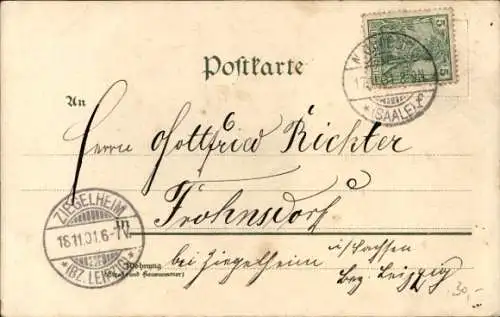 5
5
(SAALE)
Postkarte
An
Herrn Gottfried Richter
ZIEGELHEIM
18.11.01.6-7N.
*(BZ. LEIPZIG)*
in
Frohnsdorf
bei Ziegelheim
i/Sachsen
Bez. Leipzig
Wohnung
(Straße und Hausnummer)
30,-